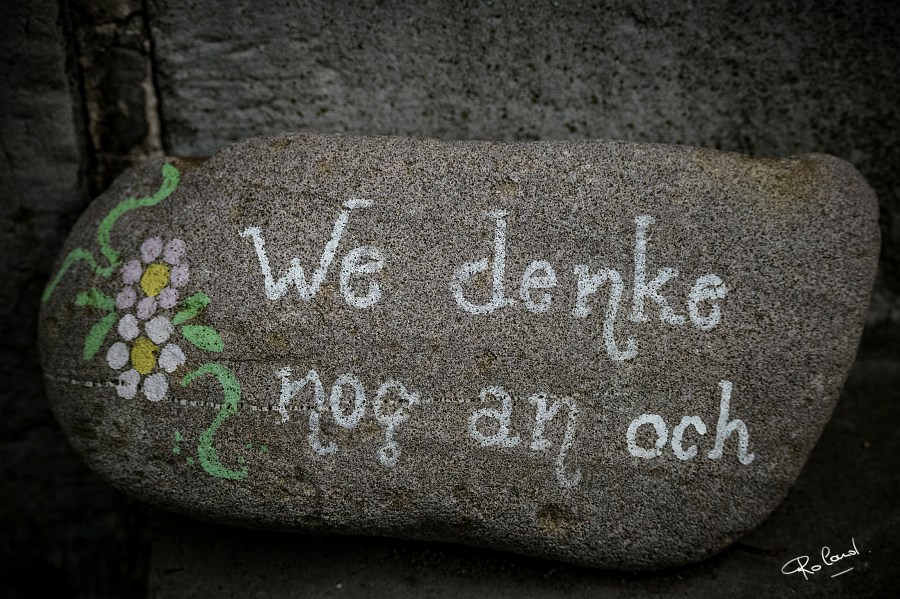 We denke
nog an och
Roland